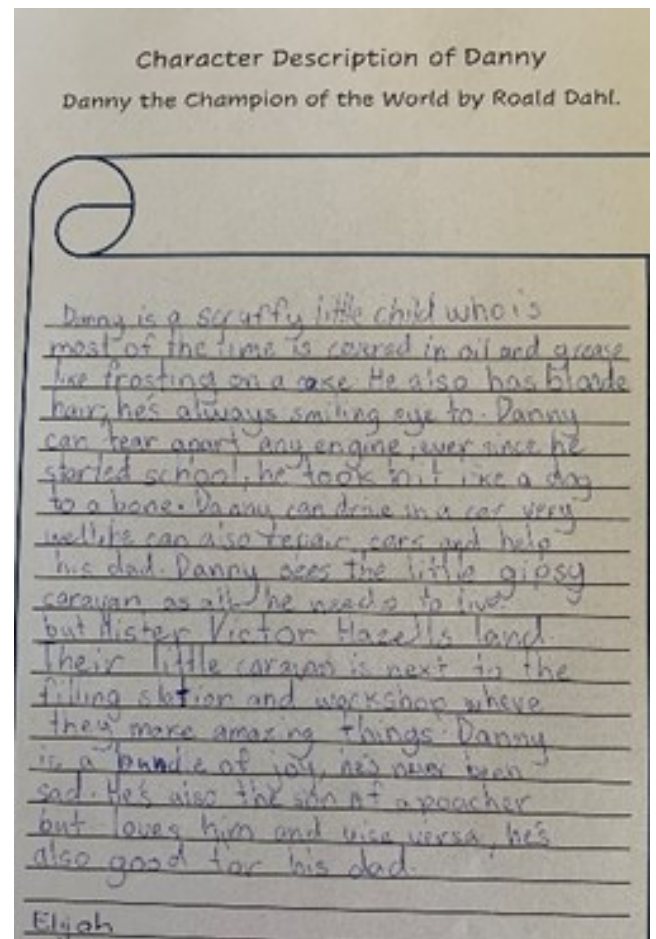 Character Description of Danny
Danny the Champion of the World by Roald Dahl.
Danny is a scruffy little child who is
most of the time is covered in oil and grease
like frosting on a cake. He also has blonde
hair, he's always smiling eye to. Danny
can tear apart any engine, ever since he
started school, he took to it like a dog
to a bone. Danny can drive in a car very
well, he can also repair cars and help
his dad. Danny sees the little gipsy
caravan as all he needs to live.
but Mister Victor Hazells land.
Their little caravan is next to the
filling station and workshop where
they make amazing things. Danny
is a bundle of joy, he's never been
sad. He's also the son of a poacher
but loves him and vise versa, he's
also good for his dad.
Elijah